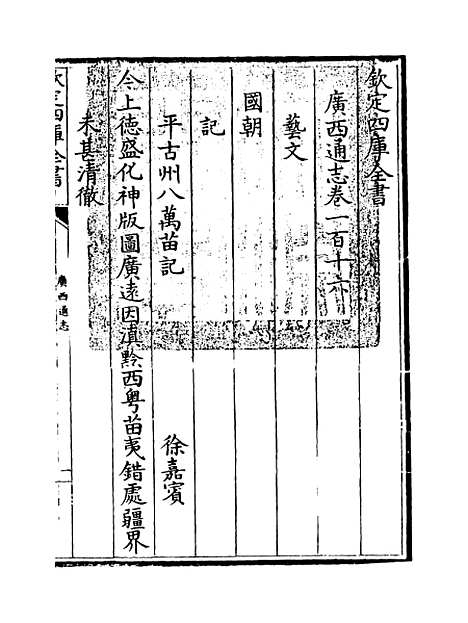 欽定四庫全書
廣西通志卷一百十六
藝文
國朝
記
平古州八萬苗記 徐嘉賓
今上徳盛化神版圖廣逺因滇黔西粤苗夷錯處疆界
未甚清徹
欽定四庫全書
廣西通志